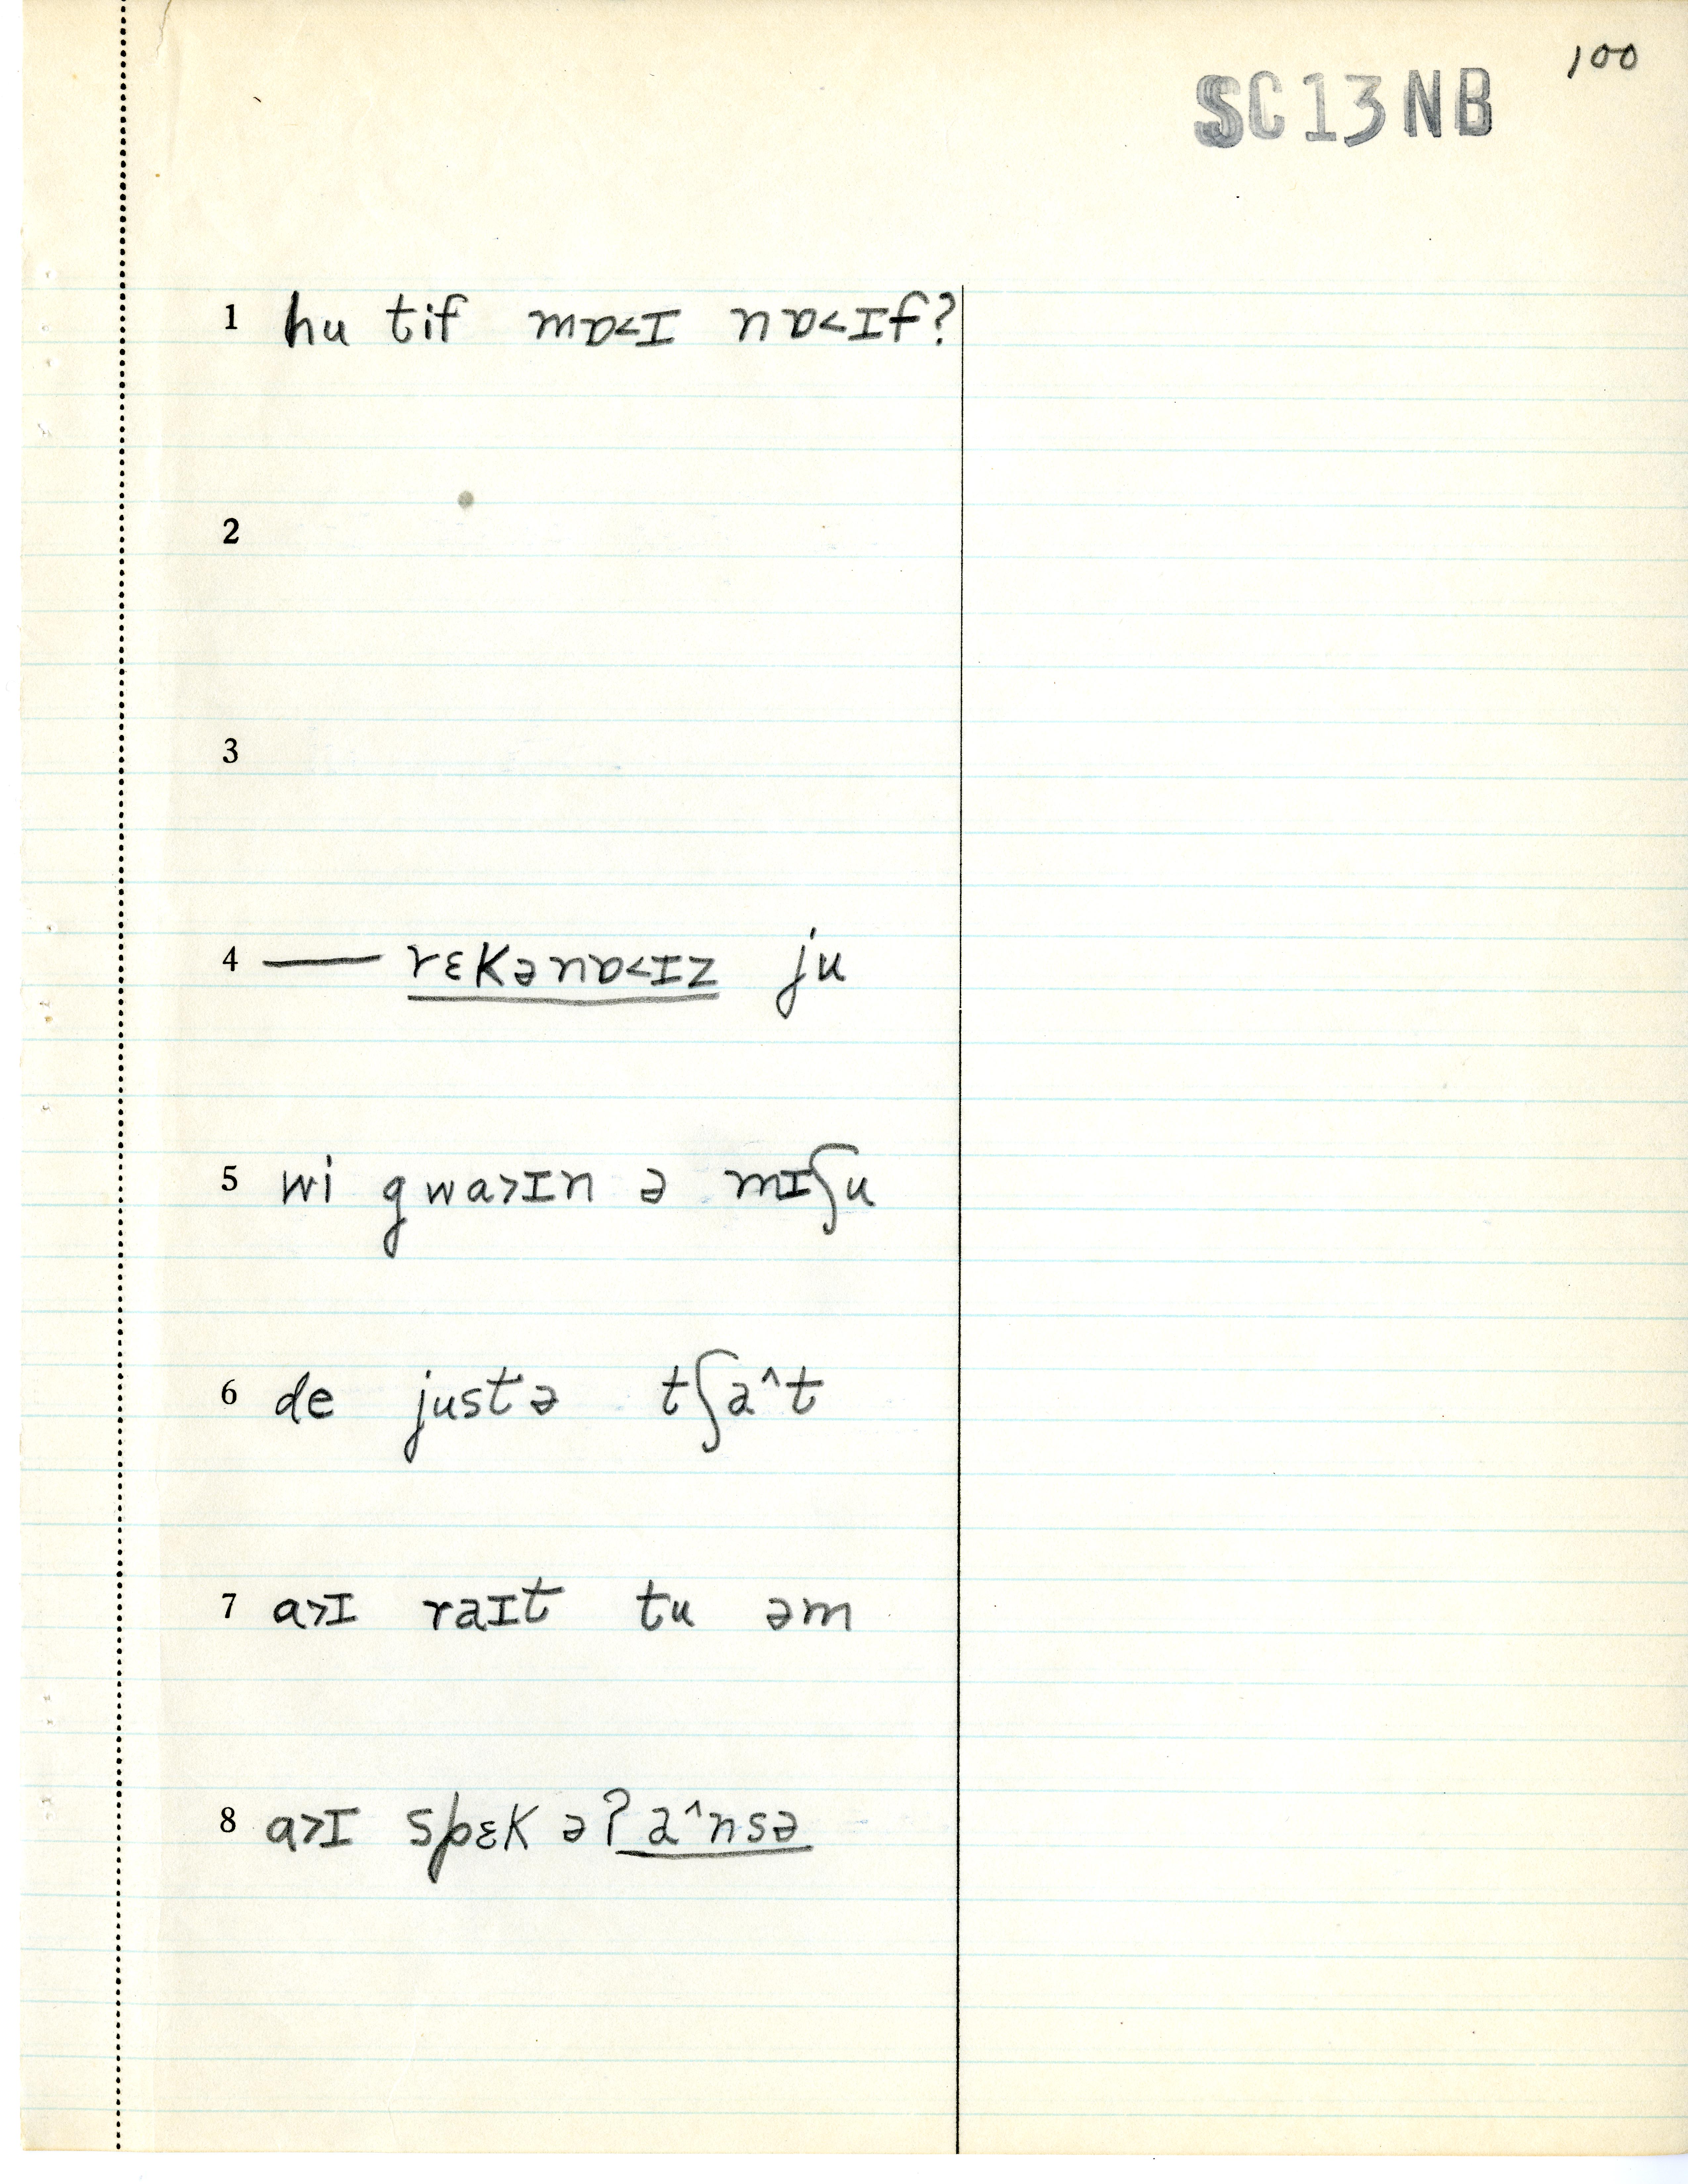 100
SC13NB
1 hu tif mɒ<ɪ nɒ<ɪf?
2
3
4 — rɛkənɒ<ɪz ju
5 wi gwa>ɪn ə mɪʃu
6 de justə tʃa^t
7 a>ɪ raɪt tu əm
8 a>ɪ spɛk əʔa^nsə